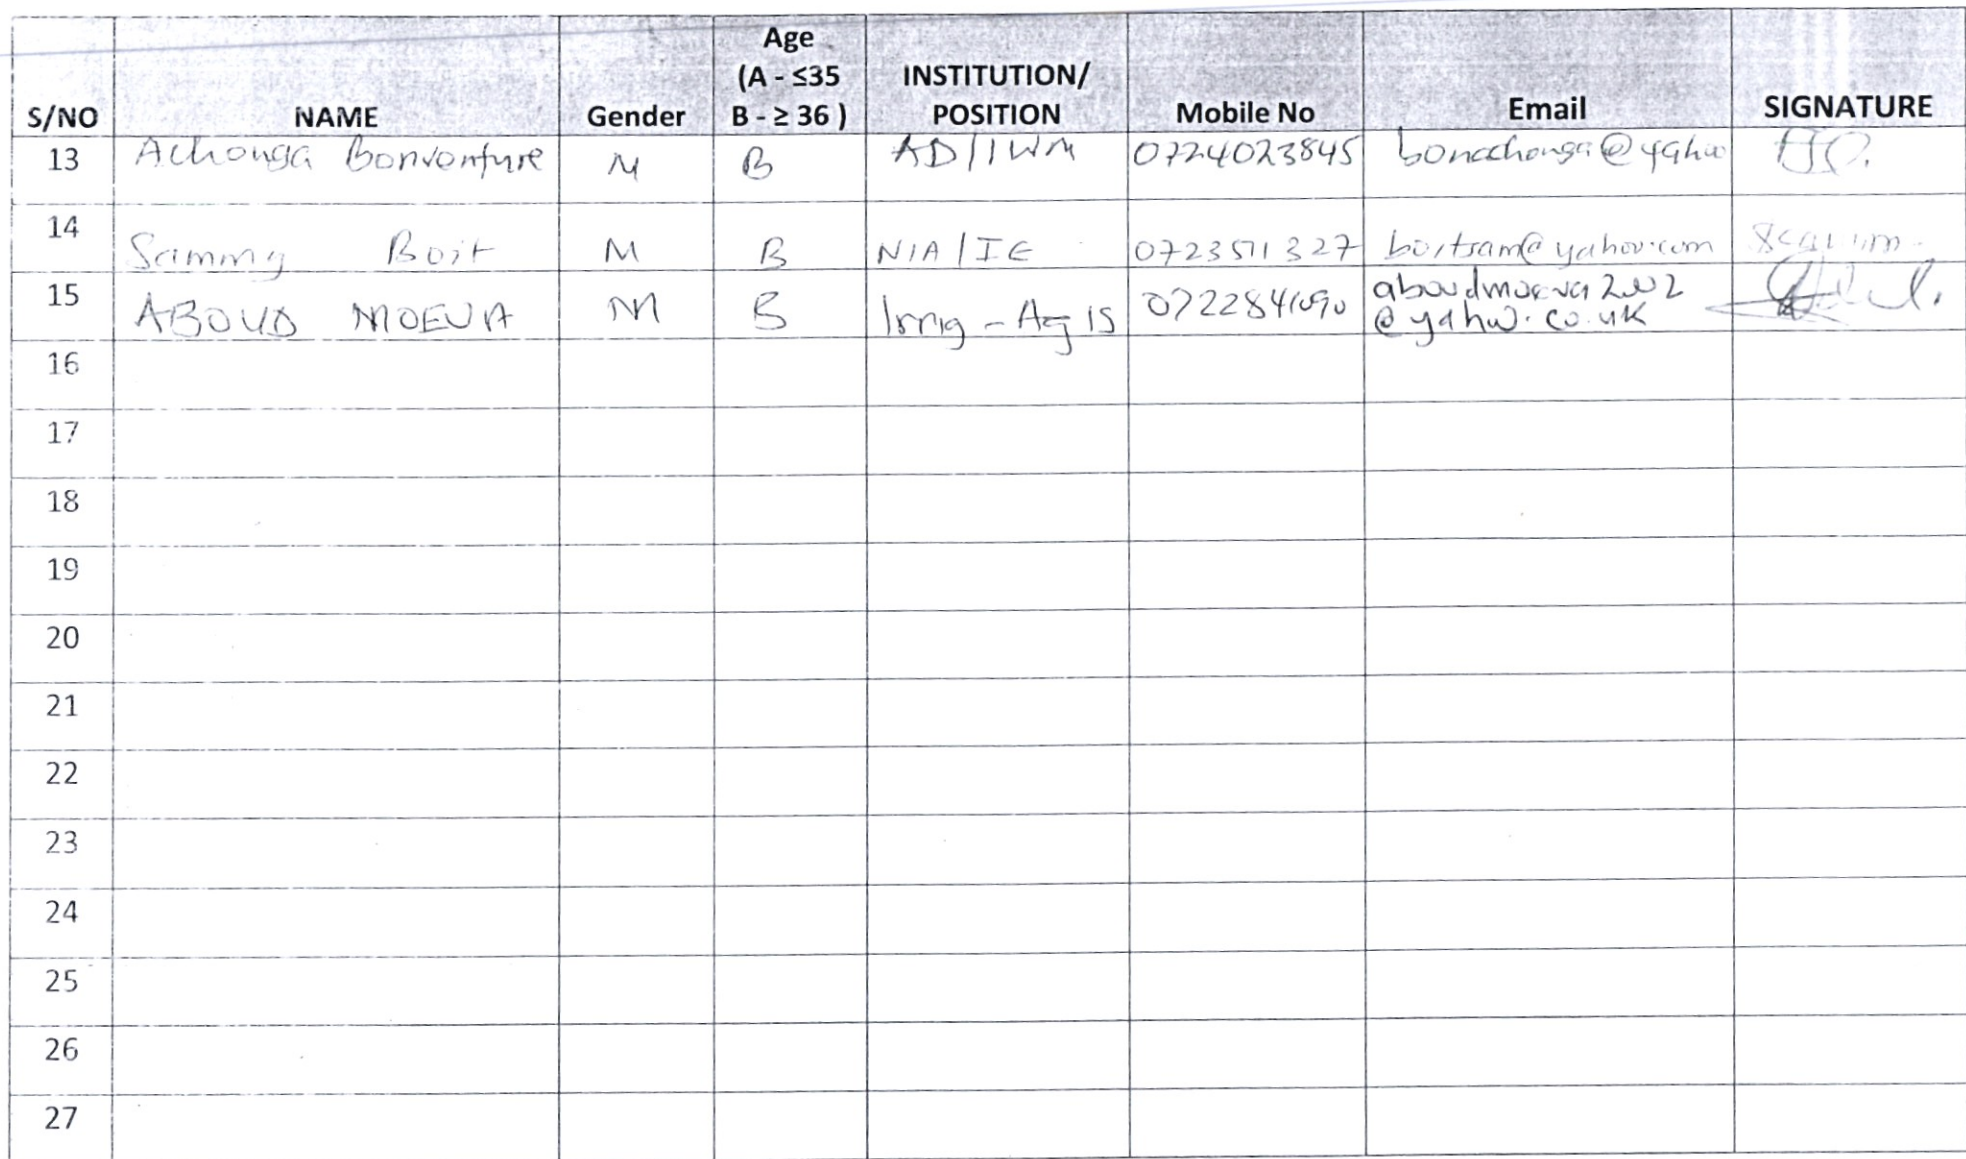 S/NO NAME Gender Age (A - ≤35 B - ≥ 36 ) INSTITUTION/ POSITION Mobile No Email SIGNATURE
13 Achonga Bonventure M B AD/IWM 0724023845 bonachonga@yahoo
14 Sammy Boit M B NIA/IE 0723511327 boitsam@yahoo.com
15 ABOUD MOEVA M B Irrig - Ag 15 aboudmoeva2002
@yahoo.co.uk
16
17
18
19
20
21
22
23
24
25
26
27